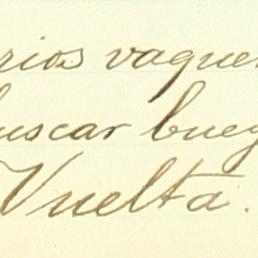 rios vaque
buscar buey
Vuelta.